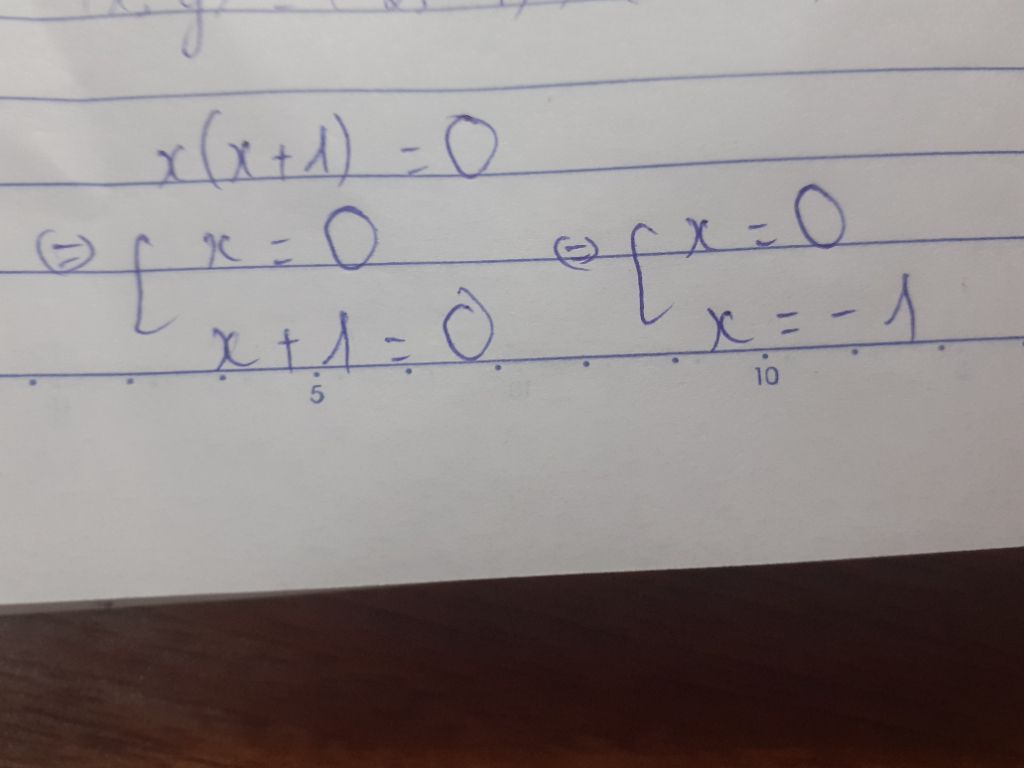 x(x+1) = 0
⇔ [ x = 0 ⇔ [ x = 0
x + 1 = 0 x = -1
5 10